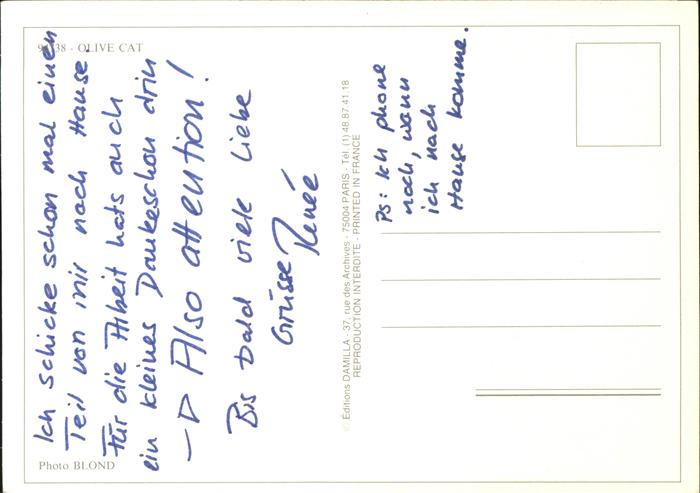 Ich schicke schon mal einen
Teil von mir nach Hause.
Für die Arbeit hats auch
ein kleines Dankeschön drin
→ Also attention!
Bis bald viele liebe
Grüsse Renée
PS: Ich phone
noch, wann
ich nach
Hause komme.
- OLIVE CAT
Photo BLOND
© Editions DAMILLA - 37, rue des Archives - 75004 PARIS - Tél. (1) 48.87.41 18
REPRODUCTION INTERDITE - PRINTED IN FRANCE